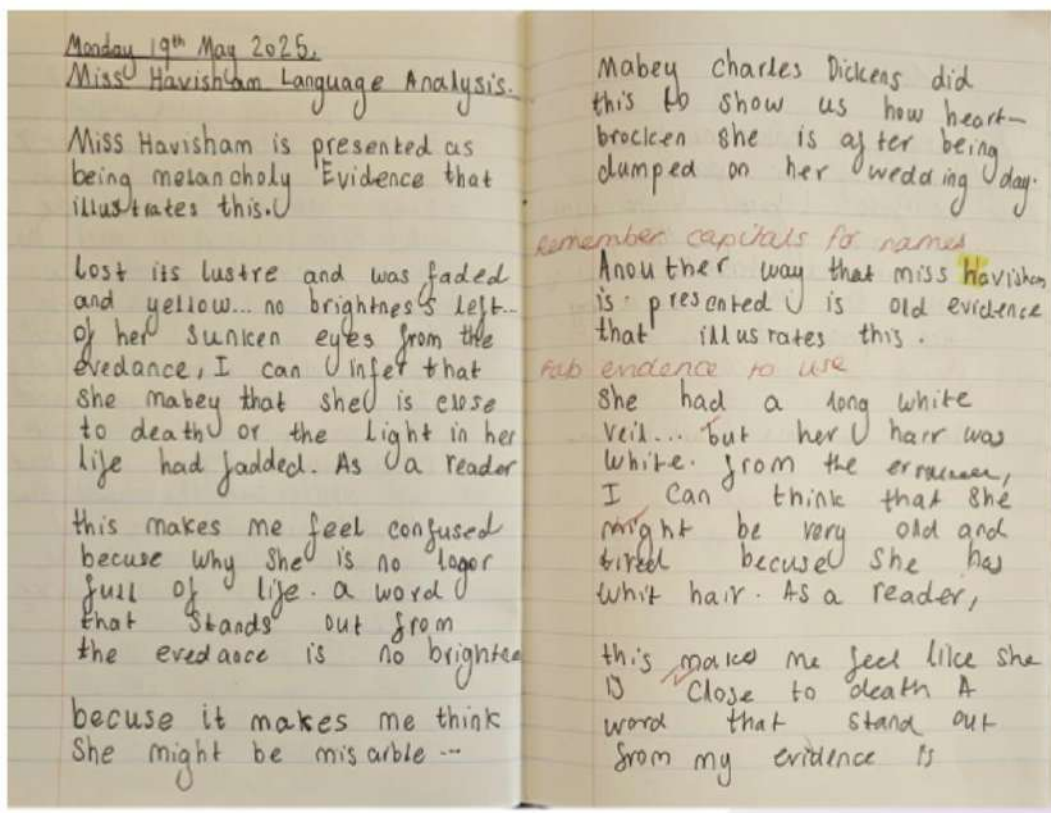 Monday 19th May 2025.
Miss Havisham Language Analysis.
Miss Havisham is presented as
being melancholy Evidence that
illustrates this.
Lost its lustre and was faded
and yellow... no brightness left...
of her sunken eyes from the
evedance, I can infer that
she mabey that she is close
to death or the light in her
life had fadded. As a reader
this makes me feel confused
becuse why she is no logor
full of life. a word
that stands out from
the evedance is no brightee
becuse it makes me think
She might be misarble ...
Mabey charles Dickens did
this to show us how heart-
brocken she is after being
dumped on her wedding day.
remember capitals for names
Anouther way that miss Havisham
is presented is old evidence
that illusrates this.
Fab evidence to use
She had a long white
veil... but her hair was
white. from the
I can think that she
might be very old and
tired becuse she has
whit hair. As a reader,
this makes me feel like she
is close to death A
word that stand out
from my evidence is